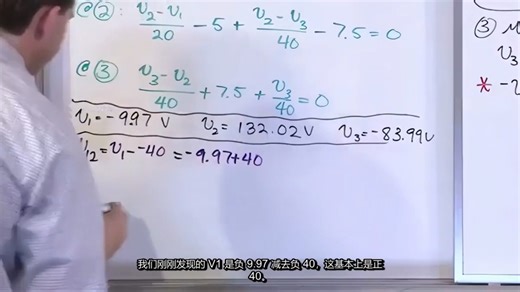 @②: (v₂-v₁)/20 - 5 + (v₂-v₃)/40 - 7.5 = 0
@③ (v₃-v₂)/40 + 7.5 + v₃/40 = 0
v₁ = -9.97 V v₂ = 132.02V v₃ = -83.99V
₁₂ = v₁ - -40 = -9.97+40
③
v₃
* -
我们刚刚发现的 V1 是负 9.97 减去负 40，这基本上是正
40。